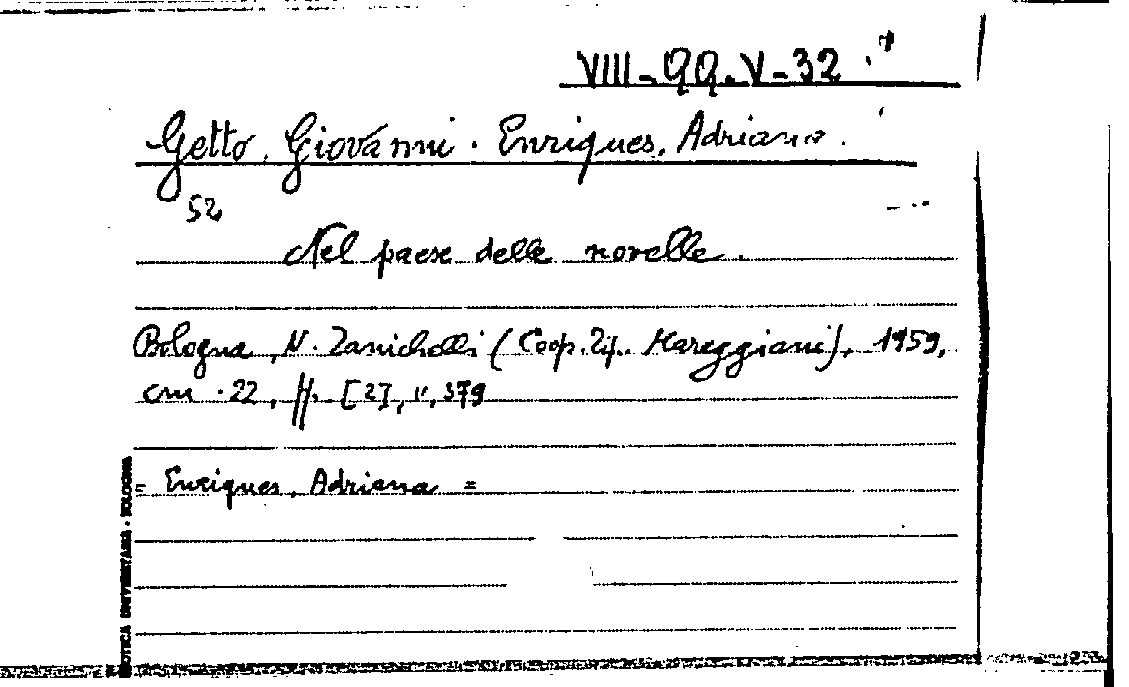 VIII-QQ.V-32
Getto, Giovanni. Enriques, Adriana.
52
Nel paese delle novelle.
Bologna, N. Zanichelli (Coop. Tip. Mareggiani), 1959,
cm. 22, pp. [2], 379
= Enriques, Adriana =
BIBLIOTECA UNIVERSITARIA - BOLOGNA